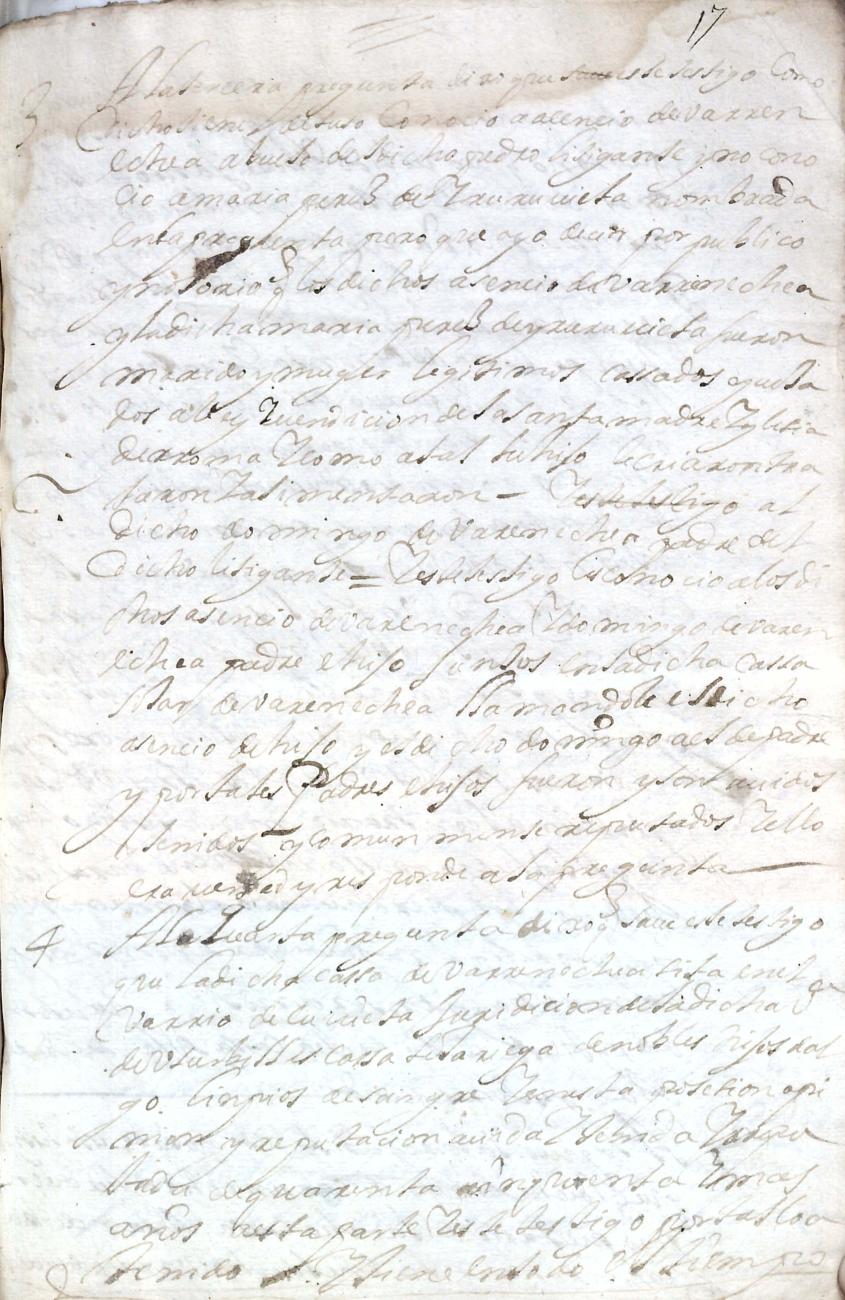 17
3 A la tercera pregunta dixo que save este testigo como
dicho tiene de suso conocio a asencio de varren
echea abuelo del dicho pedro litigante y no cono
cio a maria perez de Yrurucieta nombrada
en la pregunta pero que oyo decir por publico
y notorio q los dichos asencio de varrenechea
y la dicha maria perez de yrurucieta fueron
marido y muger legitimos cassados y vela
dos a ley y vendicion de la santa madre Yglesia
de rroma Y como a tal su hijo le criaron tra
taron Y alimentaron – Y este testigo al
dicho domingo de varenechea padre del
dicho litigante = Y este testigo les conocio a los di
chos asencio de varenechea Y domingo de varen
echea padre e hijo juntos en la dicha cassa
solar de varenechea llamandole el dicho
asencio de hijo y el dicho domingo a el de padre
y por tales Padres e hijos fueron y son avidos
tenidos y comunmente reputados Y ello
era verdad y responde a la pregunta
4 A la quarta pregunta dixo q save este testigo
que la dicha cassa de varrenechea sita en el
varrio de juridicion de la dicha va
de Vsurbil es cassa solariega de nobles hijos dal
go linpios de sangre Y en esta posesion opi
nion y reputacion avida Y tenida Y repu
tada de quarenta cinquenta Y mas
años a esta parte Y este testigo por tal lo a
tenido Y tiene en todo el tiempo